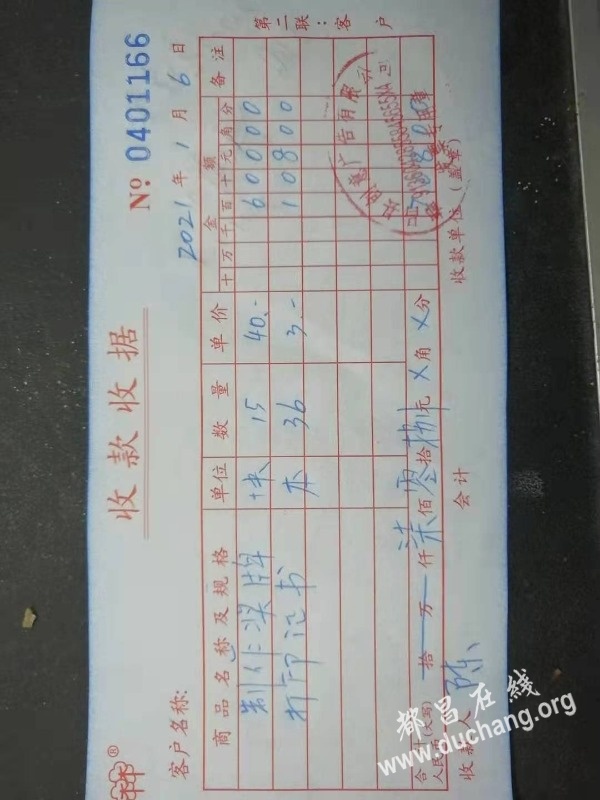 收款收据
№ 0401166
客户名称:
2021年1月6日
第二联:客户
商品名称及规格 单位 数量 单价 金额 备注
十万千百十元角分
制作奖牌 块 15 40.- 60000
打印证书 本 36 3.- 10800
合计 人民币(大写) 拾万仟柒佰零拾捌元X角X分 70800
收款人 陈 会计 收款单位(盖章)
广告有限公
都昌在线
www.duchang.org